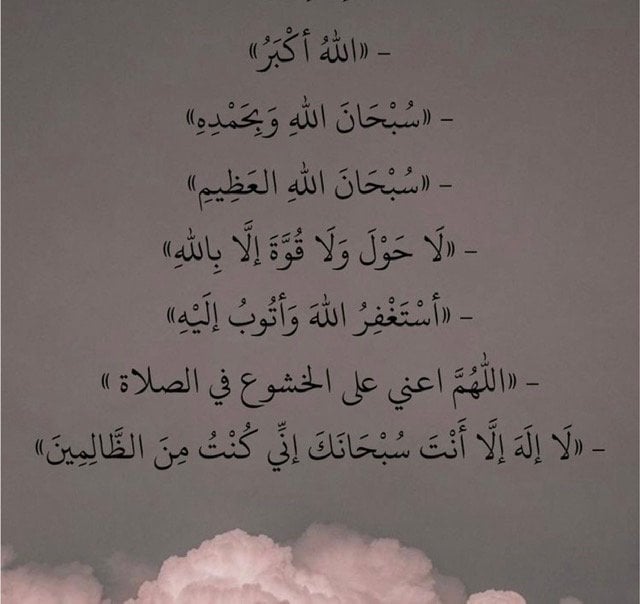 - «اللهُ أكْبَرُ»
- «سُبْحَانَ اللهِ وَبِحَمْدِهِ»
- «سُبْحَانَ اللهِ العَظِيمِ»
- «لَا حَوْلَ وَلَا قُوَّةَ إلَّا بِاللهِ»
- «أسْتَغْفِرُ اللهَ وَأتُوبُ إلَيْهِ»
- «اللَّهُمَّ اعني على الخشوع في الصلاة »
- «لَا إلَهَ إلَّا أَنْتَ سُبْحَانَكَ إنِّي كُنْتُ مِنَ الظَّالِمِينَ»